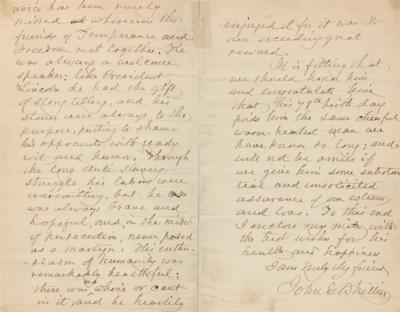 voice has been rarely
missed wherever the
friends of Temperance and
Freedom met together. He
was always a welcome
speaker: like President
Lincoln he had the gift
of story telling, and his
stories were always to the
purpose, putting to shame
his opponents with ready
wit and humor. Through
the long Anti Slavery
struggle his labors were
unremitting, but he
was always brave and
hopeful, and, in the midst
of persecution, never posed
as a martyr. His enthu-
siasm of humanity was
remarkably healthful;
there was no whine or cant
in it, and he heartily
enjoyed it for it was its
own exceeding great
reward.
It is fitting that
we should honor him
and congratulate him
that his birth day
finds him the same cheerful
warm hearted man we
have known so long, and
will not be amiss if
we give him some substan
tial and unsolicited
assurance of our esteem
and love. To this end
I enclose my mite with
the best wishes for his
health and happiness
I am truly thy friend
John G Whittier